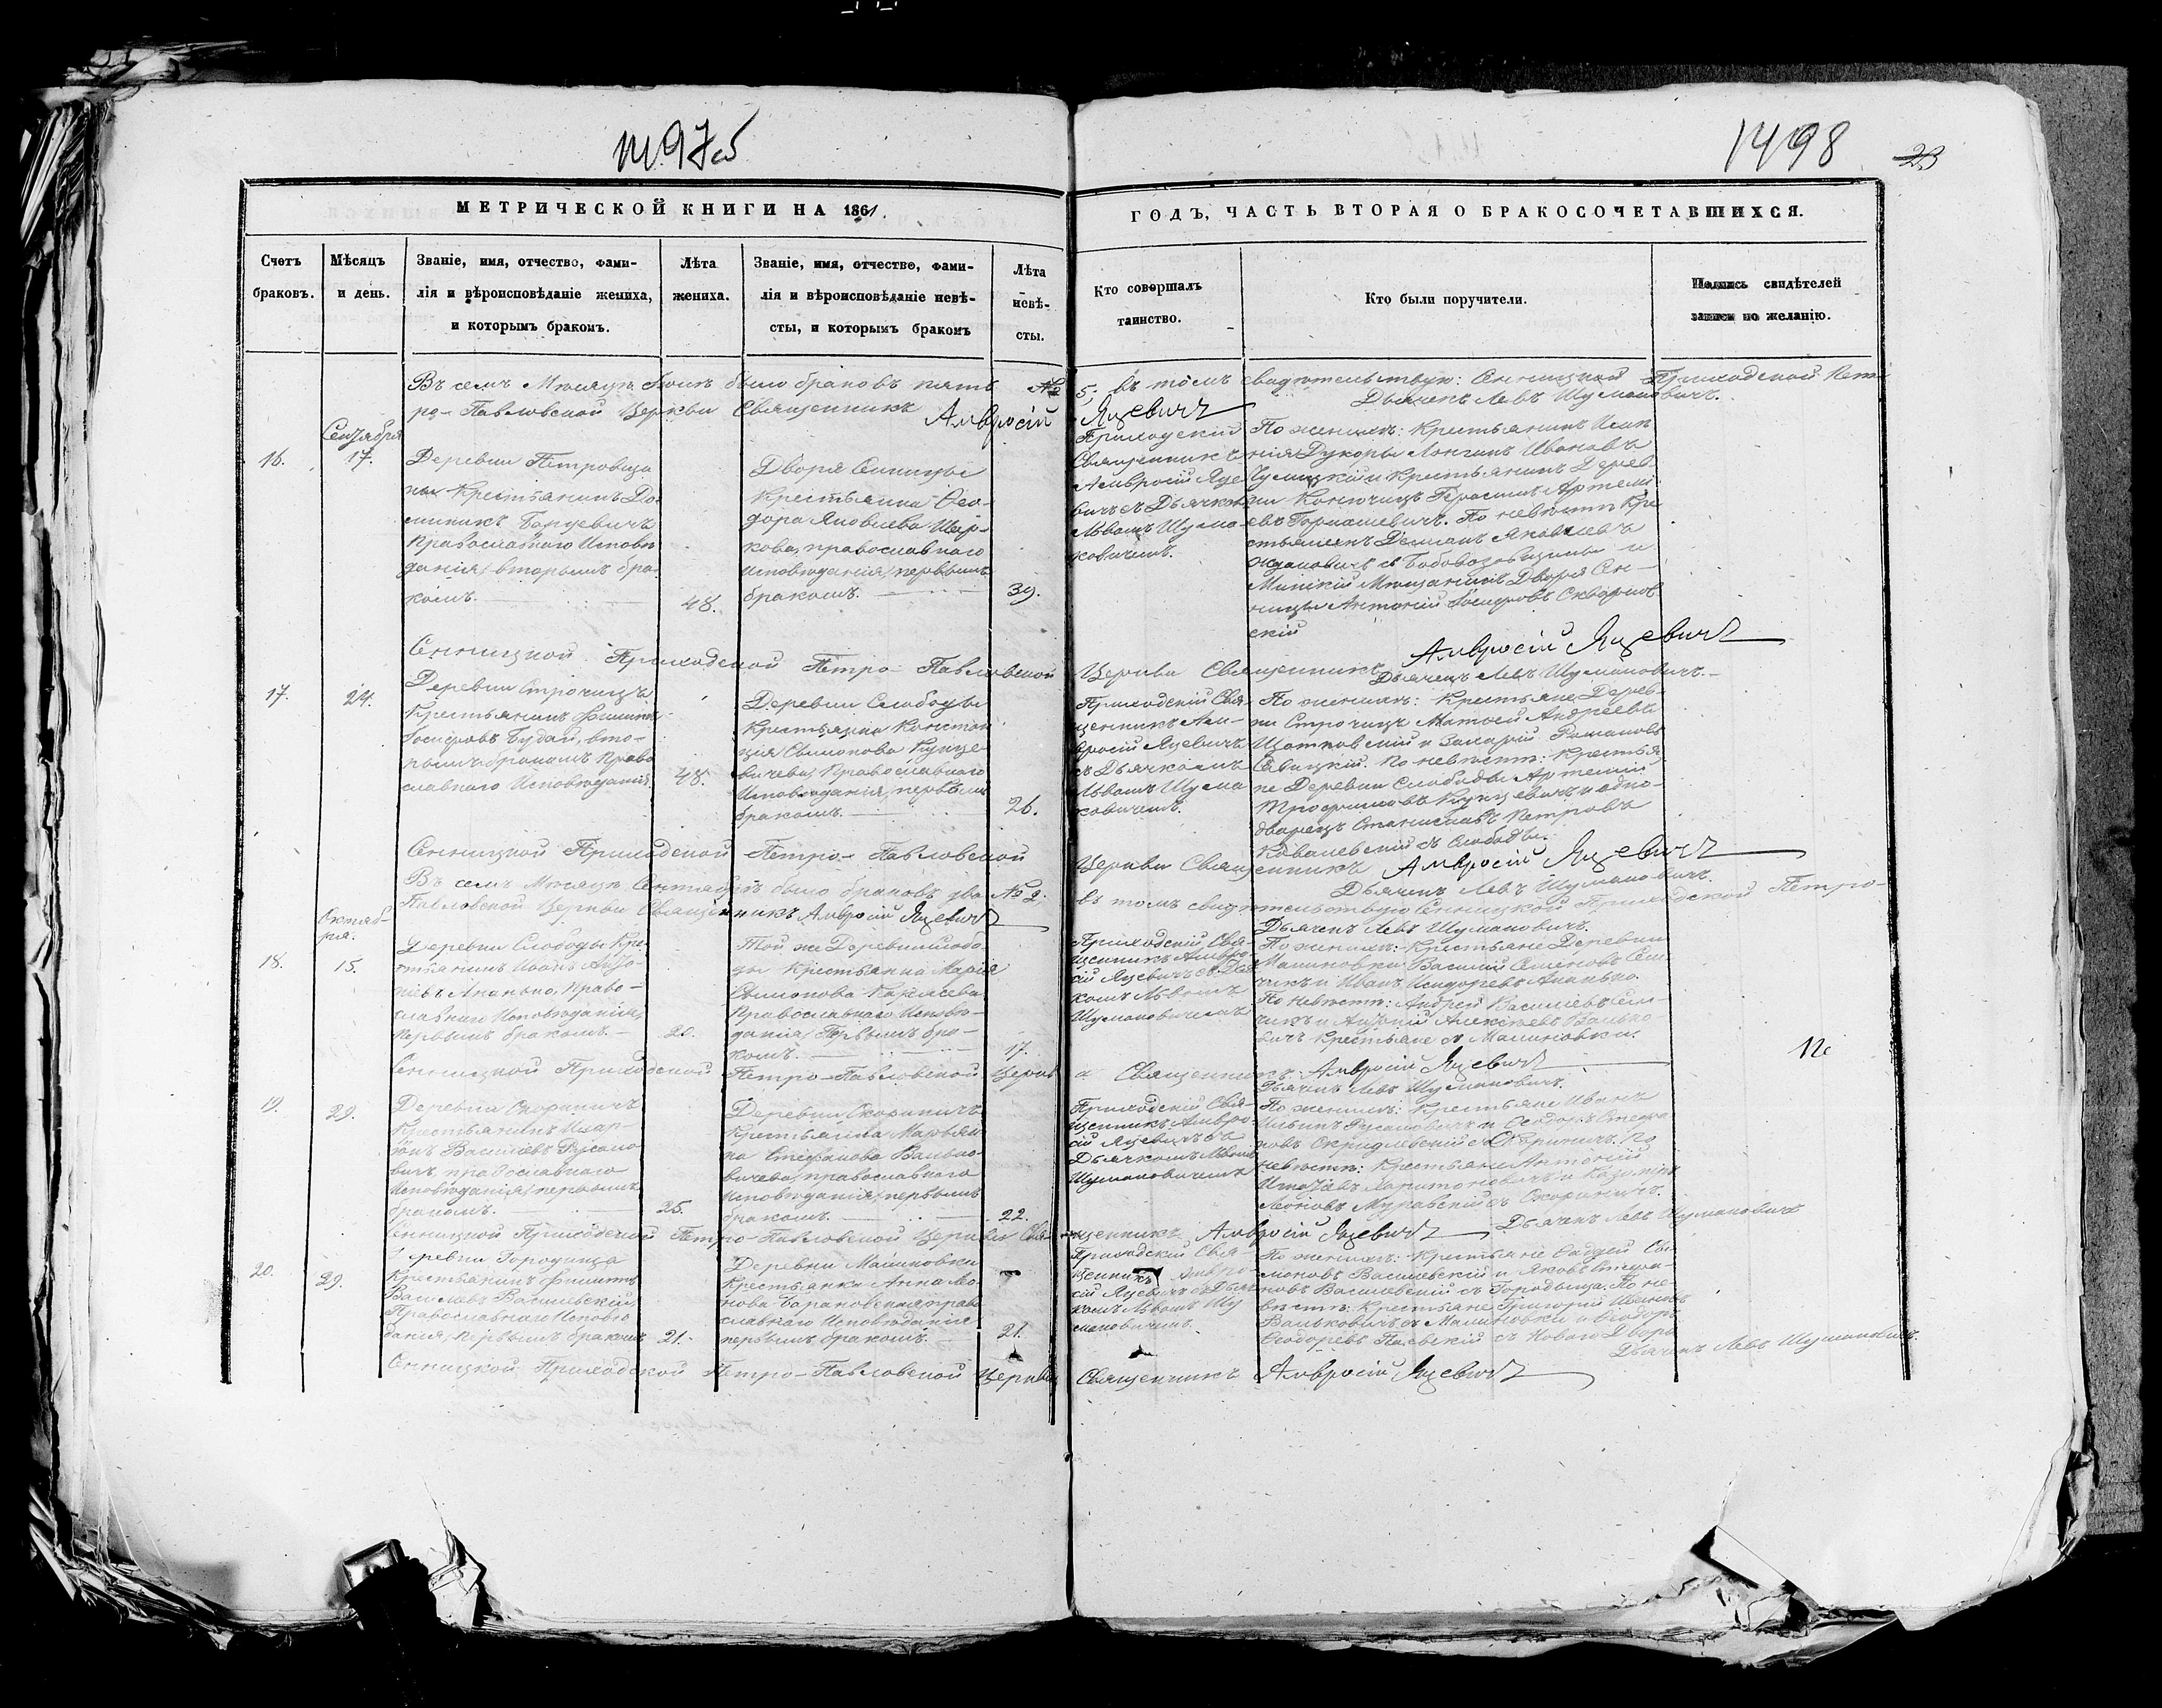 1498
23
МЕТРИЧЕСКОЙ КНИГИ НА 1861.
ГОДЪ, ЧАСТЬ ВТОРАЯ О БРАКОСОЧЕТАВШИХСЯ.
Счетъ браковъ.
Мѣсяцъ и день.
Званіе, имя, отчество, фами-
лія и вѣроисповѣданіе жениха,
и которымъ бракомъ.
Лѣта жениха.
Званіе, имя, отчество, фами-
лія и вѣроисповѣданіе невѣ-
сты, и которымъ бракомъ
Лѣта невѣ-
сты.
Кто совершалъ
таинство.
Кто были поручители.
Подпись свидѣтелей
записи по желанію.
Въ семъ Мѣсяцѣ было браковъ пять № 5, въ томъ свидѣтельствую: Сенницкой Приходской Пет
ро-Павловской Церкви Священникъ Амвросій Яцевичъ
Дьячекъ Левъ Шумановичъ.
16.
17.
Деревни
Крестьянинъ До-
миникъ
Православнаго Исповѣ
данія, вторымъ бра-
комъ.
48.
Двора Сенницы
Крестьянка Фео-
дора Яковлева
кова, православнаго
Исповѣданія, первымъ
бракомъ.
39.
Приходскій
Священникъ
Амвросій Яце-
вичъ съ Дьячкомъ
Львомъ Шума-
новичемъ.
По женихѣ: Крестьянинъ
Дукоры Лонгинъ Ивановъ
и Крестьянинъ Дерев-
ни Герасимъ Артемі-
евъ По невѣстѣ Кре
стьянинъ Демьянъ Яковлевъ
Ждановичъ и
Минскій Мѣщанинъ Двора Сен-
ницы Антоній Іосифовъ
скій
Сенницкой Приходской Петро-Павловской Церкви Священникъ Амвросій Яцевичъ
Дьячекъ Левъ Шумановичъ.
17.
24.
Деревни Строчицъ
Крестьянинъ Филиппъ
Іосифовъ Будай, вто-
рымъ бракомъ Право
славнаго Исповѣданія
48.
Деревни Слободы
Крестьянка Констан
ція Симонова Купце
вичева, Православнаго
Исповѣданія, первымъ
бракомъ.
26.
Приходскій Свя-
щенникъ Ам-
вросій Яцевичъ
съ Дьячкомъ
Львомъ Шума
новичемъ.
По женихѣ: Крестьяне Дерев-
ни Строчицъ Матвей Андреевъ
и Захарій Романовъ
Савицкій. По невѣстѣ: Крестья
не Деревни Слободы Артемій
Трофимовъ Купцевичъ и одно-
дворецъ Станиславъ Петровъ
Ковалевскій съ Слободы.
Сенницкой Приходской Петро-Павловской Церкви Священникъ Амвросій Яцевичъ
Дьячекъ Левъ Шумановичъ.
Въ семъ Мѣсяцѣ Сентябрѣ было браковъ два № 2. въ томъ свидѣтельствую Сенницкой Приходской Петро-
Павловской Церкви Священникъ Амвросій Яцевичъ
Дьячекъ Левъ Шумановичъ.
Октяб-
ря.
18.
15.
Деревни Слободы Кре-
стьянинъ Иванъ
Ананько, Право-
славнаго Исповѣданія,
первымъ бракомъ.
20.
Той же Деревни Слобо-
ды Крестьянка Марія
Симонова
Православнаго Исповѣ-
данія, Первымъ бра-
комъ.
17.
Приходскій Свя-
щенникъ Амвро-
сій Яцевичъ съ Дьяч
комъ Львомъ
Шумановичемъ
По женихѣ: Крестьяне Деревни
Малиновки Василій Семеновъ
и Иванъ Исидоровъ Ананько.
По невѣстѣ: Андрей Васильевъ
и Алексѣевъ Валько-
вичъ Крестьяне съ Малиновки.
Сенницкой Приходской Петро-Павловской Церкви Священникъ: Амвросій Яцевичъ
Дьячекъ Левъ Шумановичъ.
19.
29.
Деревни Скориничъ
Крестьянинъ
Васильевъ Русано
вичъ, православнаго
Исповѣданія, первымъ
бракомъ.
25.
Деревни Скориничъ
Крестьянка Марьян-
на Стефанова Валько-
вичева, православнаго
Исповѣданія, первымъ
бракомъ.
22.
Приходскій Свя-
щенникъ Амвро-
сій Яцевичъ съ
Дьячкомъ Львомъ
Шумановичемъ
По женихѣ: Крестьяне Иванъ
Ильинъ Русановичъ и Феодоръ Стефа
новъ По
невѣстѣ: Крестьяне Антоній
Харитоновичъ и Казиміръ
Леоновъ Муравскій съ Скориничъ.
Сенницкой Приходской Петро-Павловской Церкви Священникъ Амвросій Яцевичъ Дьячекъ Левъ Шумановичъ
20.
29.
Деревни Городища
Крестьянинъ Филиппъ
Васильевъ Василевскій,
Православнаго Исповѣ
данія, первымъ бракомъ
21.
Деревни Малиновки
Крестьянка Анна
Барановская право
славнаго Исповѣданія
первымъ бракомъ.
21.
Приходскій Свя-
щенникъ Амвро-
сій Яцевичъ съ Дьяч
комъ Львомъ Шу
мановичемъ.
По женихѣ: Крестьяне Фадей Си-
моновъ Василевскій и Яковъ Стефа-
новъ Василевскій съ Городища. По не-
вѣстѣ: Крестьяне Григорій Ивановъ
Вальковичъ съ Малиновки и Феодоръ
Феодоровъ съ Новаго Двора
Дьячекъ Левъ Шумановичъ.
Сенницкой Приходской Петро-Павловской Церкви Священникъ Амвросій Яцевичъ